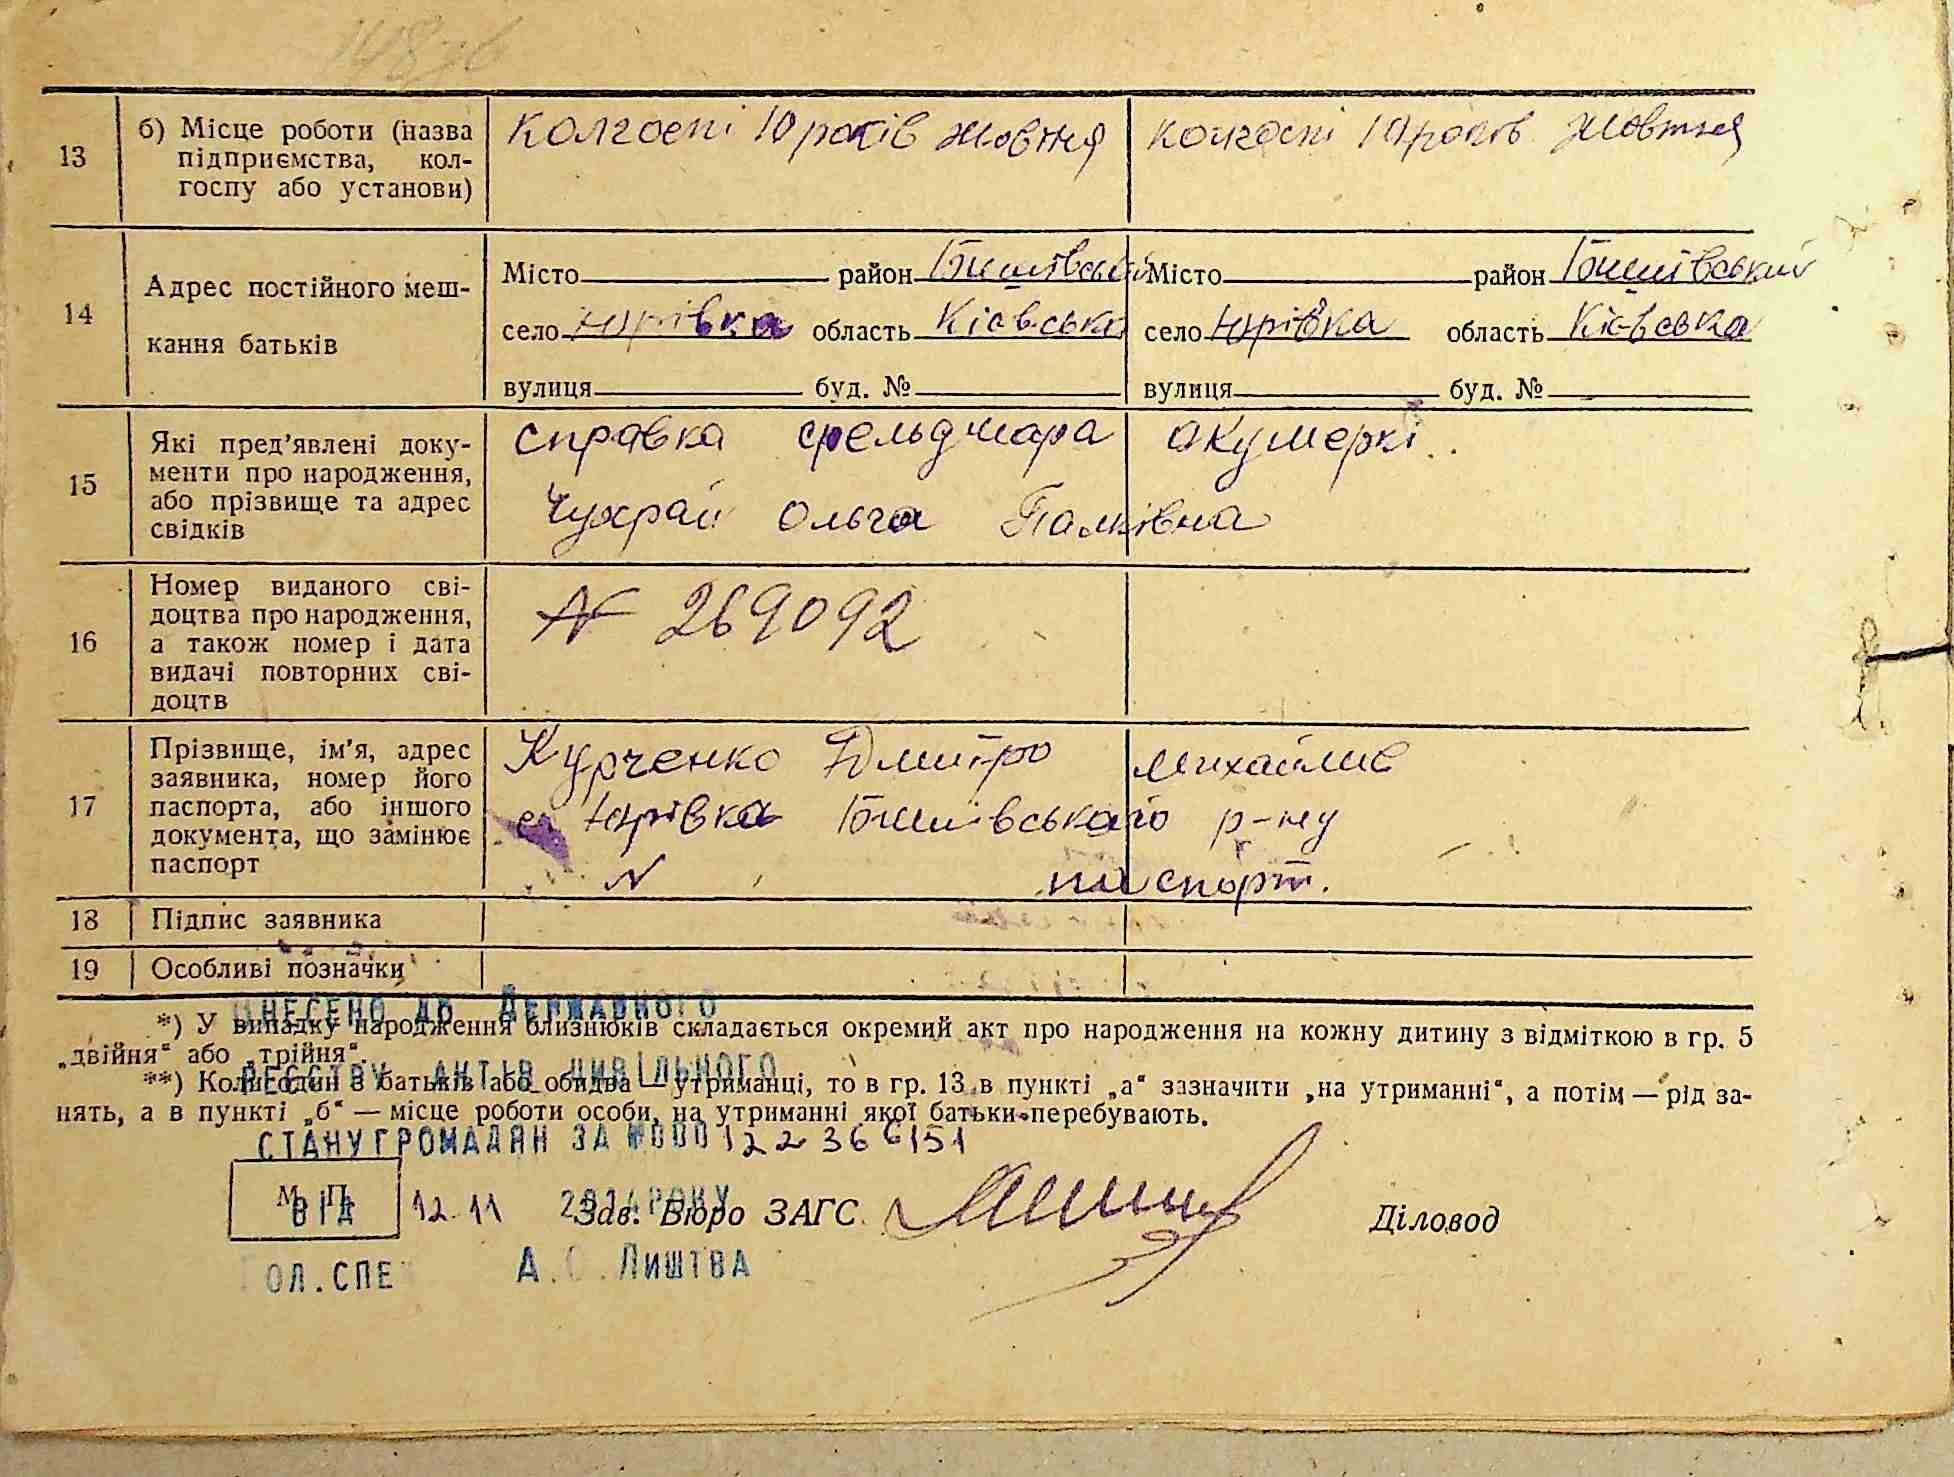 13 б) Місце роботи (назва підприємства, кол-
госпу або установи)
колгоспі 10 років жовтня
колгоспі 10 років жовтня
14 Адрес постійного меш-
кання батьків
Місто район Бишівський
село Юрівка область Київська
вулиця буд. №
Місто район Бишівський
село Юрівка область Київська
вулиця буд. №
15 Які пред'явлені доку-
менти про народження,
або прізвище та адрес
свідків
справка фельдшара акушеркі
Чухрай Ольга
16 Номер виданого сві-
доцтва про народження,
а також номер і дата
видачі повторних сві-
доцтв
№ 269092
17 Прізвище, ім'я, адрес
заявника, номер його
паспорта, або іншого
документа, що замінює
паспорт
Курченко Дмитро
с. Юрівка Бишівського р-ну
N паспорт.
18 Підпис заявника
19 Особливі позначки
ВНЕСЕНО ДО ДЕРЖАВНОГО
*) У випадку народження близнюків складається окремий акт про народження на кожну дитину з відміткою в гр. 5
„двійня“ або „трійня“.
РЕЄСТРУ АКТІВ ЦИВІЛЬНОГО
**) Коли один з батьків або обидва — утриманці, то в гр. 13 в пункті „а“ зазначити „на утриманні“, а потім — рід за-
нять, а в пункті „б“ — місце роботи особи, на утриманні якої батьки перебувають.
СТАНУ ГРОМАДЯН ЗА №000122366151
М. П.
ВІД 12.11 2024 РОКУ
Зав. Бюро ЗАГС Діловод
ГОЛ.СПЕЦ А.О.ЛИШТВА